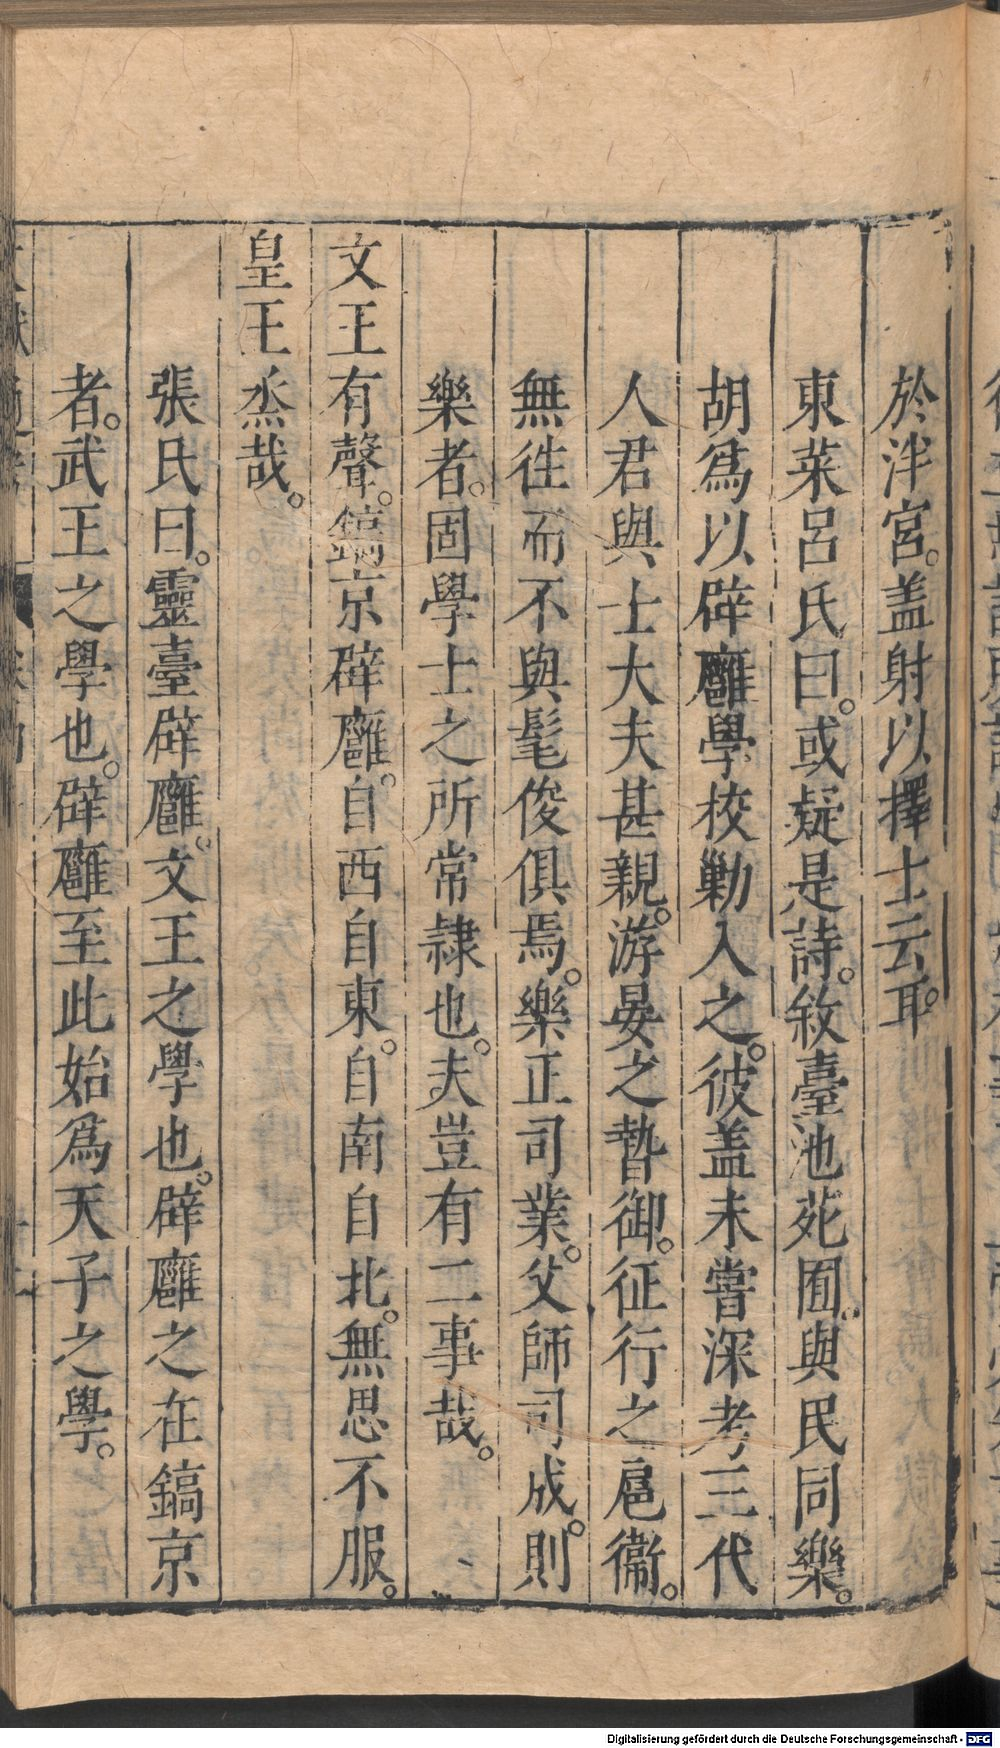 於泮宮。盖射以擇士云耳。
東萊呂氏曰。或疑是詩。敘臺池苑囿。與民同樂。
胡爲以辟廱學校勦入之。彼盖未嘗深考三代
人君與士大夫甚親。游晏之暬御。征行之扈衞。
無徃而不與髦俊俱焉。樂正司業。父師司成。則
樂者。固學士之所常隷也。夫豈有二事哉。
文王有聲。鎬京辟廱。自西自東。自南自北。無思不服。
皇王烝哉。
張氏曰。靈臺辟廱。文王之學也。辟廱之在鎬京
者。武王之學也。辟廱至此始爲天子之學。
Digitalisierung gefördert durch die Deutsche Forschungsgemeinschaft - DFG